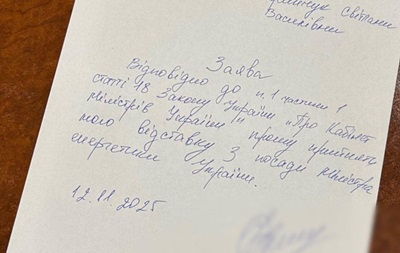 Світлани
Василівни
Заява
Відповідно до п.1 частини 1
статті 18 Закону України „Про Кабінет
Міністрів України" прошу прийняти
мою відставку з посади міністра
енергетики України.
12.11.2025